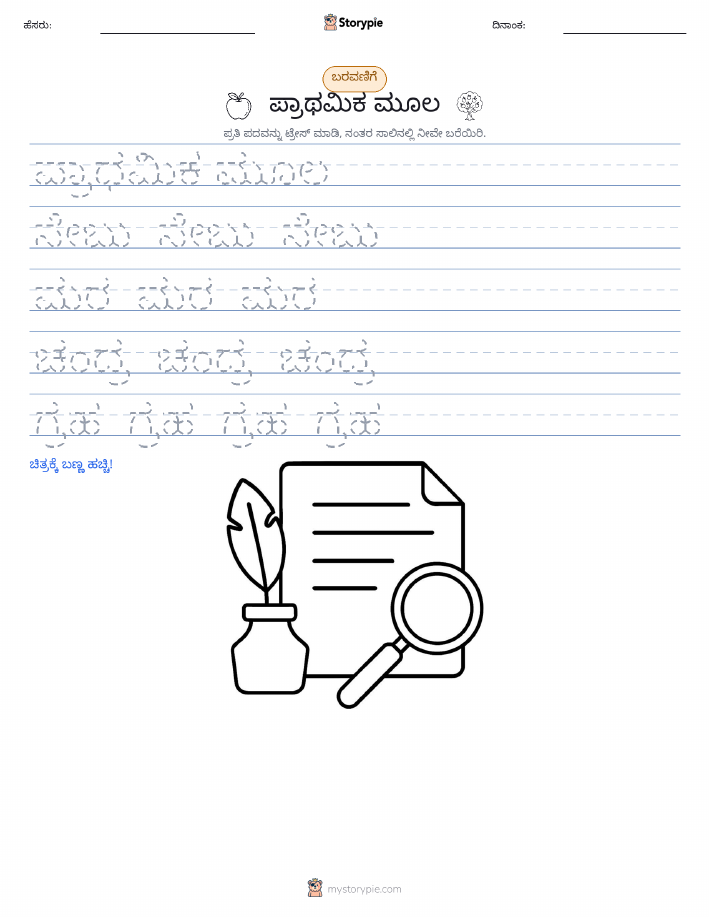 ಹೆಸರು: Storypie ದಿನಾಂಕ:
ಬರವಣಿಗೆ
ಪ್ರಾಥಮಿಕ ಮೂಲ
ಪ್ರತಿ ಪದವನ್ನು ಟ್ರೇಸ್ ಮಾಡಿ, ನಂತರ ಸಾಲಿನಲ್ಲಿ ನೀವೇ ಬರೆಯಿರಿ.
ಪ್ರಾಥಮಿಕ ಮೂಲ
ಸೇಬು ಸೇಬು ಸೇಬು
ಮರ ಮರ ಮರ
ಚಂದ್ರ ಚಂದ್ರ ಚಂದ್ರ
ಗ್ರಹ ಗ್ರಹ ಗ್ರಹ ಗ್ರಹ
ಚಿತ್ರಕ್ಕೆ ಬಣ್ಣ ಹಚ್ಚಿ!
mystorypie.com